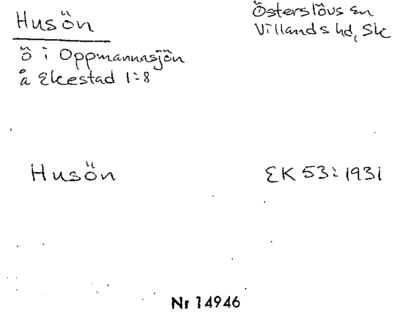 Husön
Österslövs sn
Villands hd, Sk
ö i Oppmannasjön
å Ekestad 1:8
Husön
EK 53:1931
Nr 14946